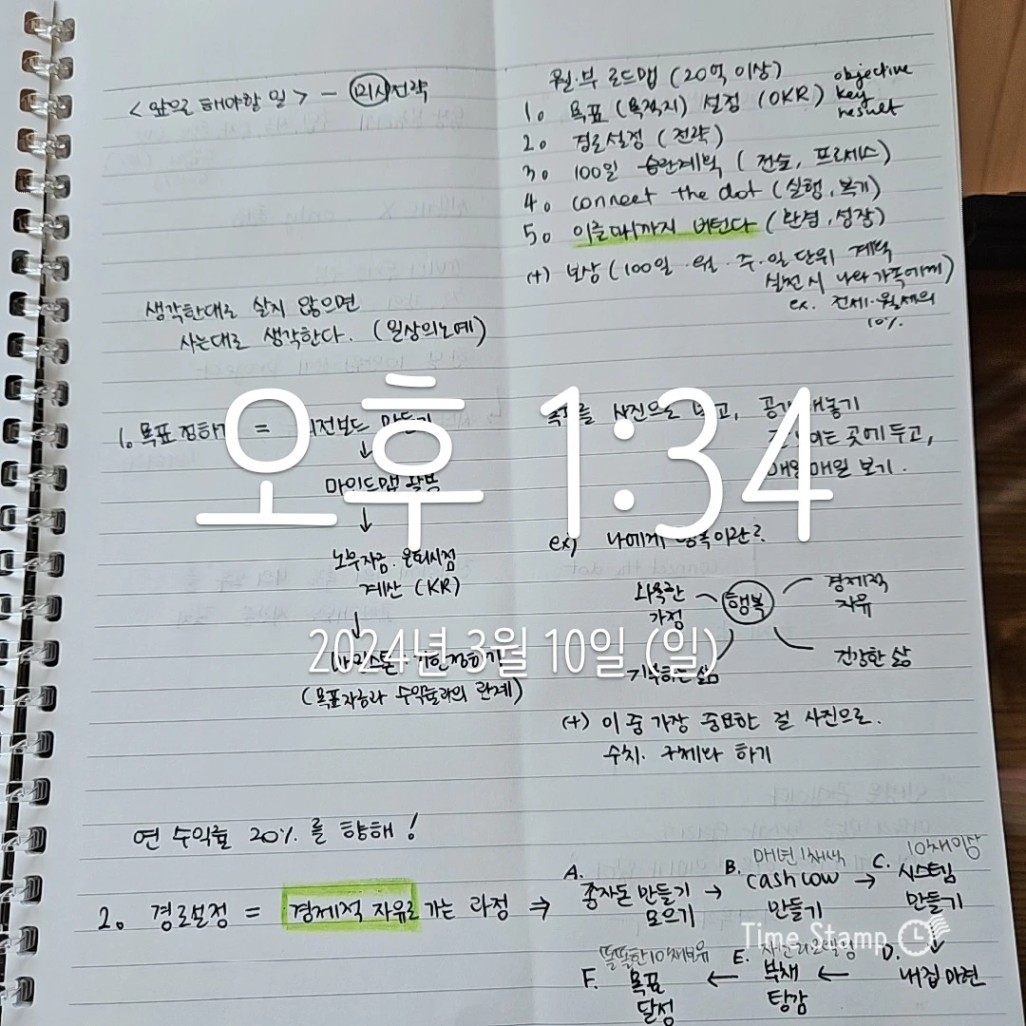 <앞으로 해야할 일> - 미시전략
생각한대로 살지 않으면
사는대로 생각한다. (일상의노예)
1. 목표정하기 = 비전보드 만들기
↓
마인드맵 활용
↓
노후자금·은퇴시점
계산 (KR)
↓
마일스톤 기한정하기
(목표자금과 수익률과의 관계)
연 수익률 20%를 향해!
월·부 로드맵 (20억 이상)
1. 목표 (목적지) 설정 (OKR) objective
key
result
2. 경로설정 (전략)
3. 100일 계획 (전술, 프로세스)
4. connect the dot (실행, 복기)
5. 이룰때까지 버틴다 (반복, 성장)
(+) 보상 (100일·월·주·일 단위 계획
실천시 나와가족에게)
ex. 전세·월세의
10%
목표를 사진으로 넣고, 공개해놓기
잘 보이는 곳에 두고,
매일매일 보기.
ex) 나에게 행복이란?
화목한
가정
행복
경제적
자유
기부하는 삶
건강한 삶
(+) 이 중 가장 중요한 걸 사진으로.
수치·구체화 하기
2. 경로설정 = 경제적 자유로 가는 과정 ⇒
A.
종자돈 만들기
모으기
→
B. 매년 1채씩
cash cow
만들기
→
C. 10채이상
시스템
만들기
↓
D.
내집마련
←
E.
부채
탕감
←
똘똘한 1채보유
F. 목표
달성
오후 1:34
2024년 3월 10일 (일)
Time Stamp